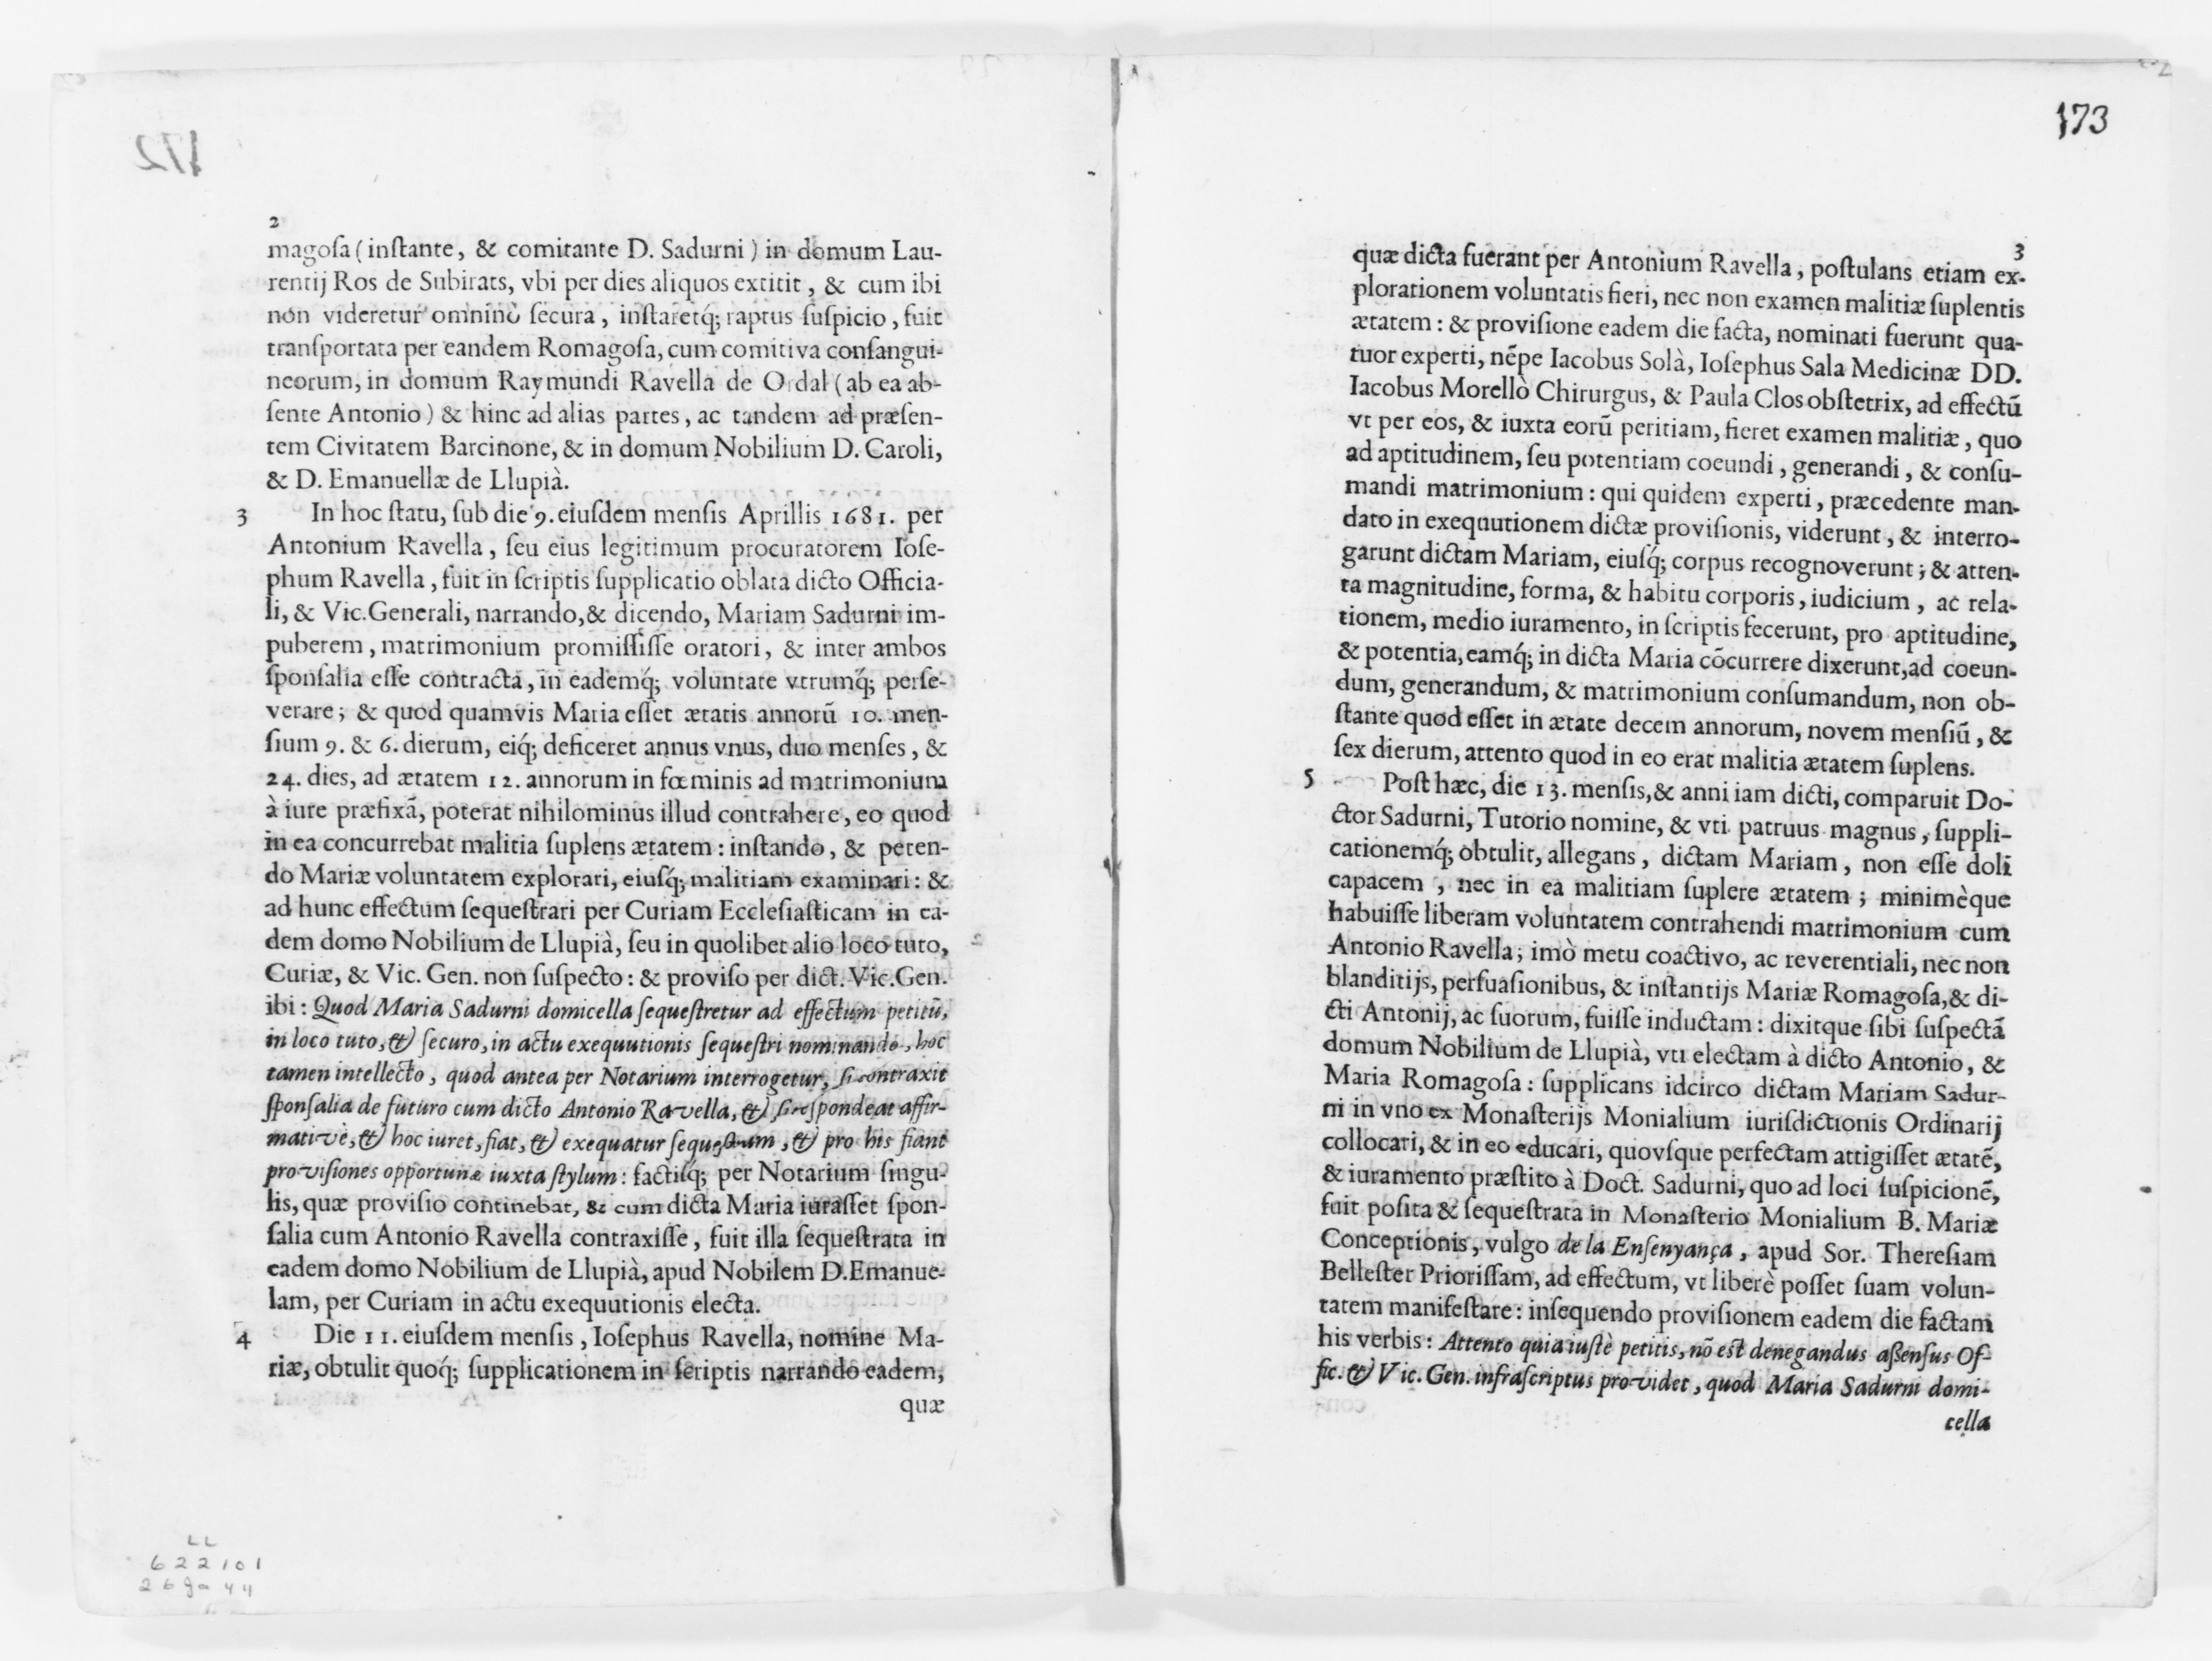 172
2
magoſa (inſtante, & comitante D. Sadurni) in domum Lau-
rentij Ros de Subirats, vbi per dies aliquos extitit, & cum ibi
non videretur omninò ſecura, inſtaretq́; raptus ſuſpicio, fuit
tranſportata per eandem Romagoſa, cum comitiva conſangui-
neorum, in domum Raymundi Ravella de Ordal (ab ea ab-
ſente Antonio) & hinc ad alias partes, ac tandem ad præſen-
tem Civitatem Barcinone, & in domum Nobilium D. Caroli,
& D. Emanuellæ de Llupià.
3 In hoc ſtatu, ſub die 9. eiuſdem menſis Aprillis 1681. per
Antonium Ravella, ſeu eius legitimum procuratorem Ioſe-
phum Ravella, fuit in ſcriptis ſupplicatio oblata dicto Officia-
li, & Vic. Generali, narrando, & dicendo, Mariam Sadurni im-
puberem, matrimonium promiſſiſſe oratori, & inter ambos
ſponſalia eſſe contracta, in eademq́; voluntate vtrumq́; perſe-
verare; & quod quamvis Maria eſſet ætatis annorū 10. men-
ſium 9. & 6. dierum, eiq́; deficeret annus vnus, duo menſes, &
24. dies, ad ætatem 12. annorum in fœminis ad matrimonium
à iure præfixā, poterat nihilominus illud contrahere, eo quod
in ea concurrebat malitia ſuplens ætatem: inſtando, & peten-
do Mariæ voluntatem explorari, eiuſq́; malitiam examinari: &
ad hunc effectum ſequeſtrari per Curiam Eccleſiaſticam in ea-
dem domo Nobilium de Llupià, ſeu in quolibet alio loco tuto,
Curiæ, & Vic. Gen. non ſuſpecto: & proviſo per dict. Vic. Gen.
ibi: Quod Maria Sadurni domicella ſequeſtretur ad effectum petitū,
in loco tuto, & ſecuro, in actu exequutionis ſequeſtri nominando, hoc
tamen intellecto, quod antea per Notarium interrogetur, ſi contraxit
ſponſalia de futuro cum dicto Antonio Ravella, & ſi reſpondeat affir-
mativè, & hoc iuret, fiat, & exequatur ſequeſtrum, & pro his fiant
proviſiones opportunæ iuxta ſtylum: factiſq́; per Notarium ſingu-
lis, quæ proviſio continebat, & cum dicta Maria iuraſſet ſpon-
ſalia cum Antonio Ravella contraxiſſe, fuit illa ſequeſtrata in
eadem domo Nobilium de Llupià, apud Nobilem D. Emanue-
lam, per Curiam in actu exequutionis electa.
4 Die 11. eiuſdem menſis, Ioſephus Ravella, nomine Ma-
riæ, obtulit quoq́; ſupplicationem in ſcriptis narrando eadem,
quæ
LL
622101
26ga44
173
3
quæ dicta fuerant per Antonium Ravella, poſtulans etiam ex-
plorationem voluntatis fieri, nec non examen malitiæ ſuplentis
ætatem: & proviſione eadem die facta, nominati fuerunt qua-
tuor experti, nēpe Iacobus Solà, Ioſephus Sala Medicinæ DD.
Iacobus Morellò Chirurgus, & Paula Clos obſtetrix, ad effectū
vt per eos, & iuxta eorū peritiam, fieret examen malitiæ, quo
ad aptitudinem, ſeu potentiam coeundi, generandi, & conſu-
mandi matrimonium: qui quidem experti, præcedente man-
dato in exequutionem dictæ proviſionis, viderunt, & interro-
garunt dictam Mariam, eiuſq́; corpus recognoverunt; & atten-
ta magnitudine, forma, & habitu corporis, iudicium, ac rela-
tionem, medio iuramento, in ſcriptis fecerunt, pro aptitudine,
& potentia, eamq́; in dicta Maria cōcurrere dixerunt, ad coeun-
dum, generandum, & matrimonium conſumandum, non ob-
ſtante quod eſſet in ætate decem annorum, novem menſiū, &
ſex dierum, attento quod in eo erat malitia ætatem ſuplens.
5 Poſt hæc, die 13. menſis, & anni iam dicti, comparuit Do-
ctor Sadurni, Tutorio nomine, & vti patruus magnus, ſuppli-
cationemq́; obtulit, allegans, dictam Mariam, non eſſe doli
capacem, nec in ea malitiam ſuplere ætatem; minimèque
habuiſſe liberam voluntatem contrahendi matrimonium cum
Antonio Ravella; imò metu coactivo, ac reverentiali, nec non
blanditijs, perſuaſionibus, & inſtantijs Mariæ Romagoſa, & di-
cti Antonij, ac ſuorum, fuiſſe inductam: dixitque ſibi ſuſpectā
domum Nobilium de Llupià, vti electam à dicto Antonio, &
Maria Romagoſa: ſupplicans idcirco dictam Mariam Sadur-
ni in vno ex Monaſterijs Monialium iuriſdictionis Ordinarij
collocari, & in eo educari, quovſque perfectam attigiſſet ætatē,
& iuramento præſtito à Doct. Sadurni, quo ad loci ſuſpicionē,
fuit poſita & ſequeſtrata in Monaſterio Monialium B. Mariæ
Conceptionis, vulgo de la Enſenyança, apud Sor. Thereſiam
Belleſter Prioriſſam, ad effectum, vt liberè poſſet ſuam volun-
tatem manifeſtare: inſequendo proviſionem eadem die factam
his verbis: Attento quia iuſtè petitis, nō eſt denegandus aſſenſus Of-
fic. & Vic. Gen. infraſcriptus providet, quod Maria Sadurni domi-
cella